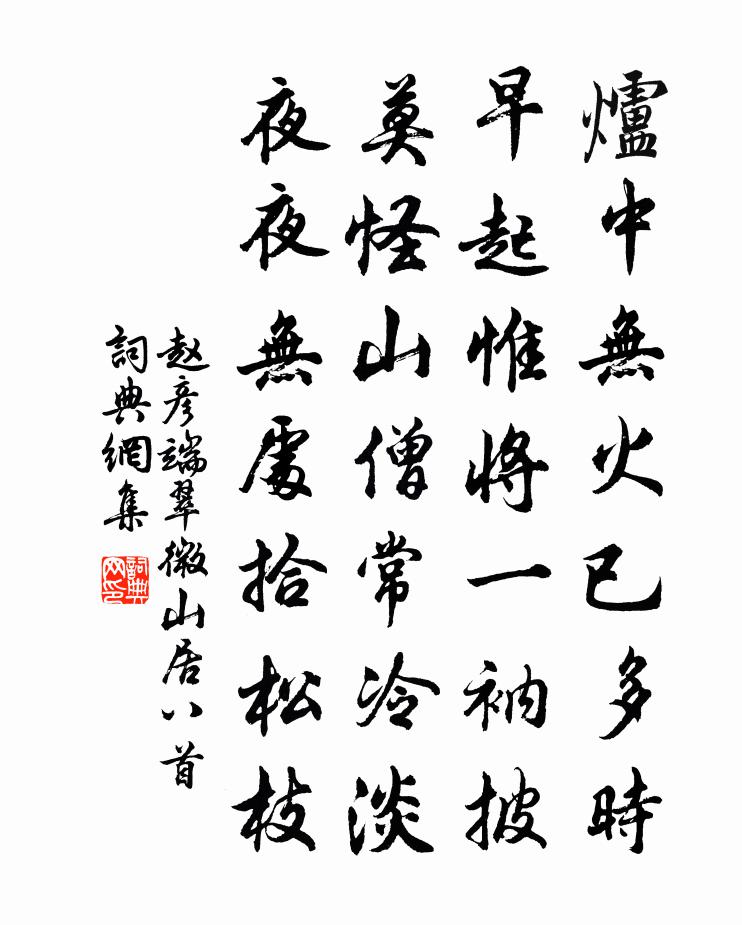 爐中無火已多時
早起惟將一衲披
莫怪山僧常冷淡
夜夜無處拾松枝
赵彦端翠微山居八首
詞典網集
詞典网印